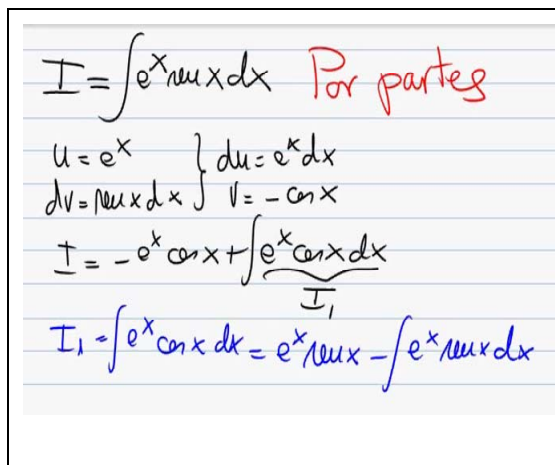 I = ∫e^x sen x dx Por partes
u = e^x } du = e^x dx
dv = sen x dx } v = - cos x
I = - e^x cos x + ∫e^x cos x dx
I₁
I₁ = ∫e^x cos x dx = e^x sen x - ∫e^x sen x dx